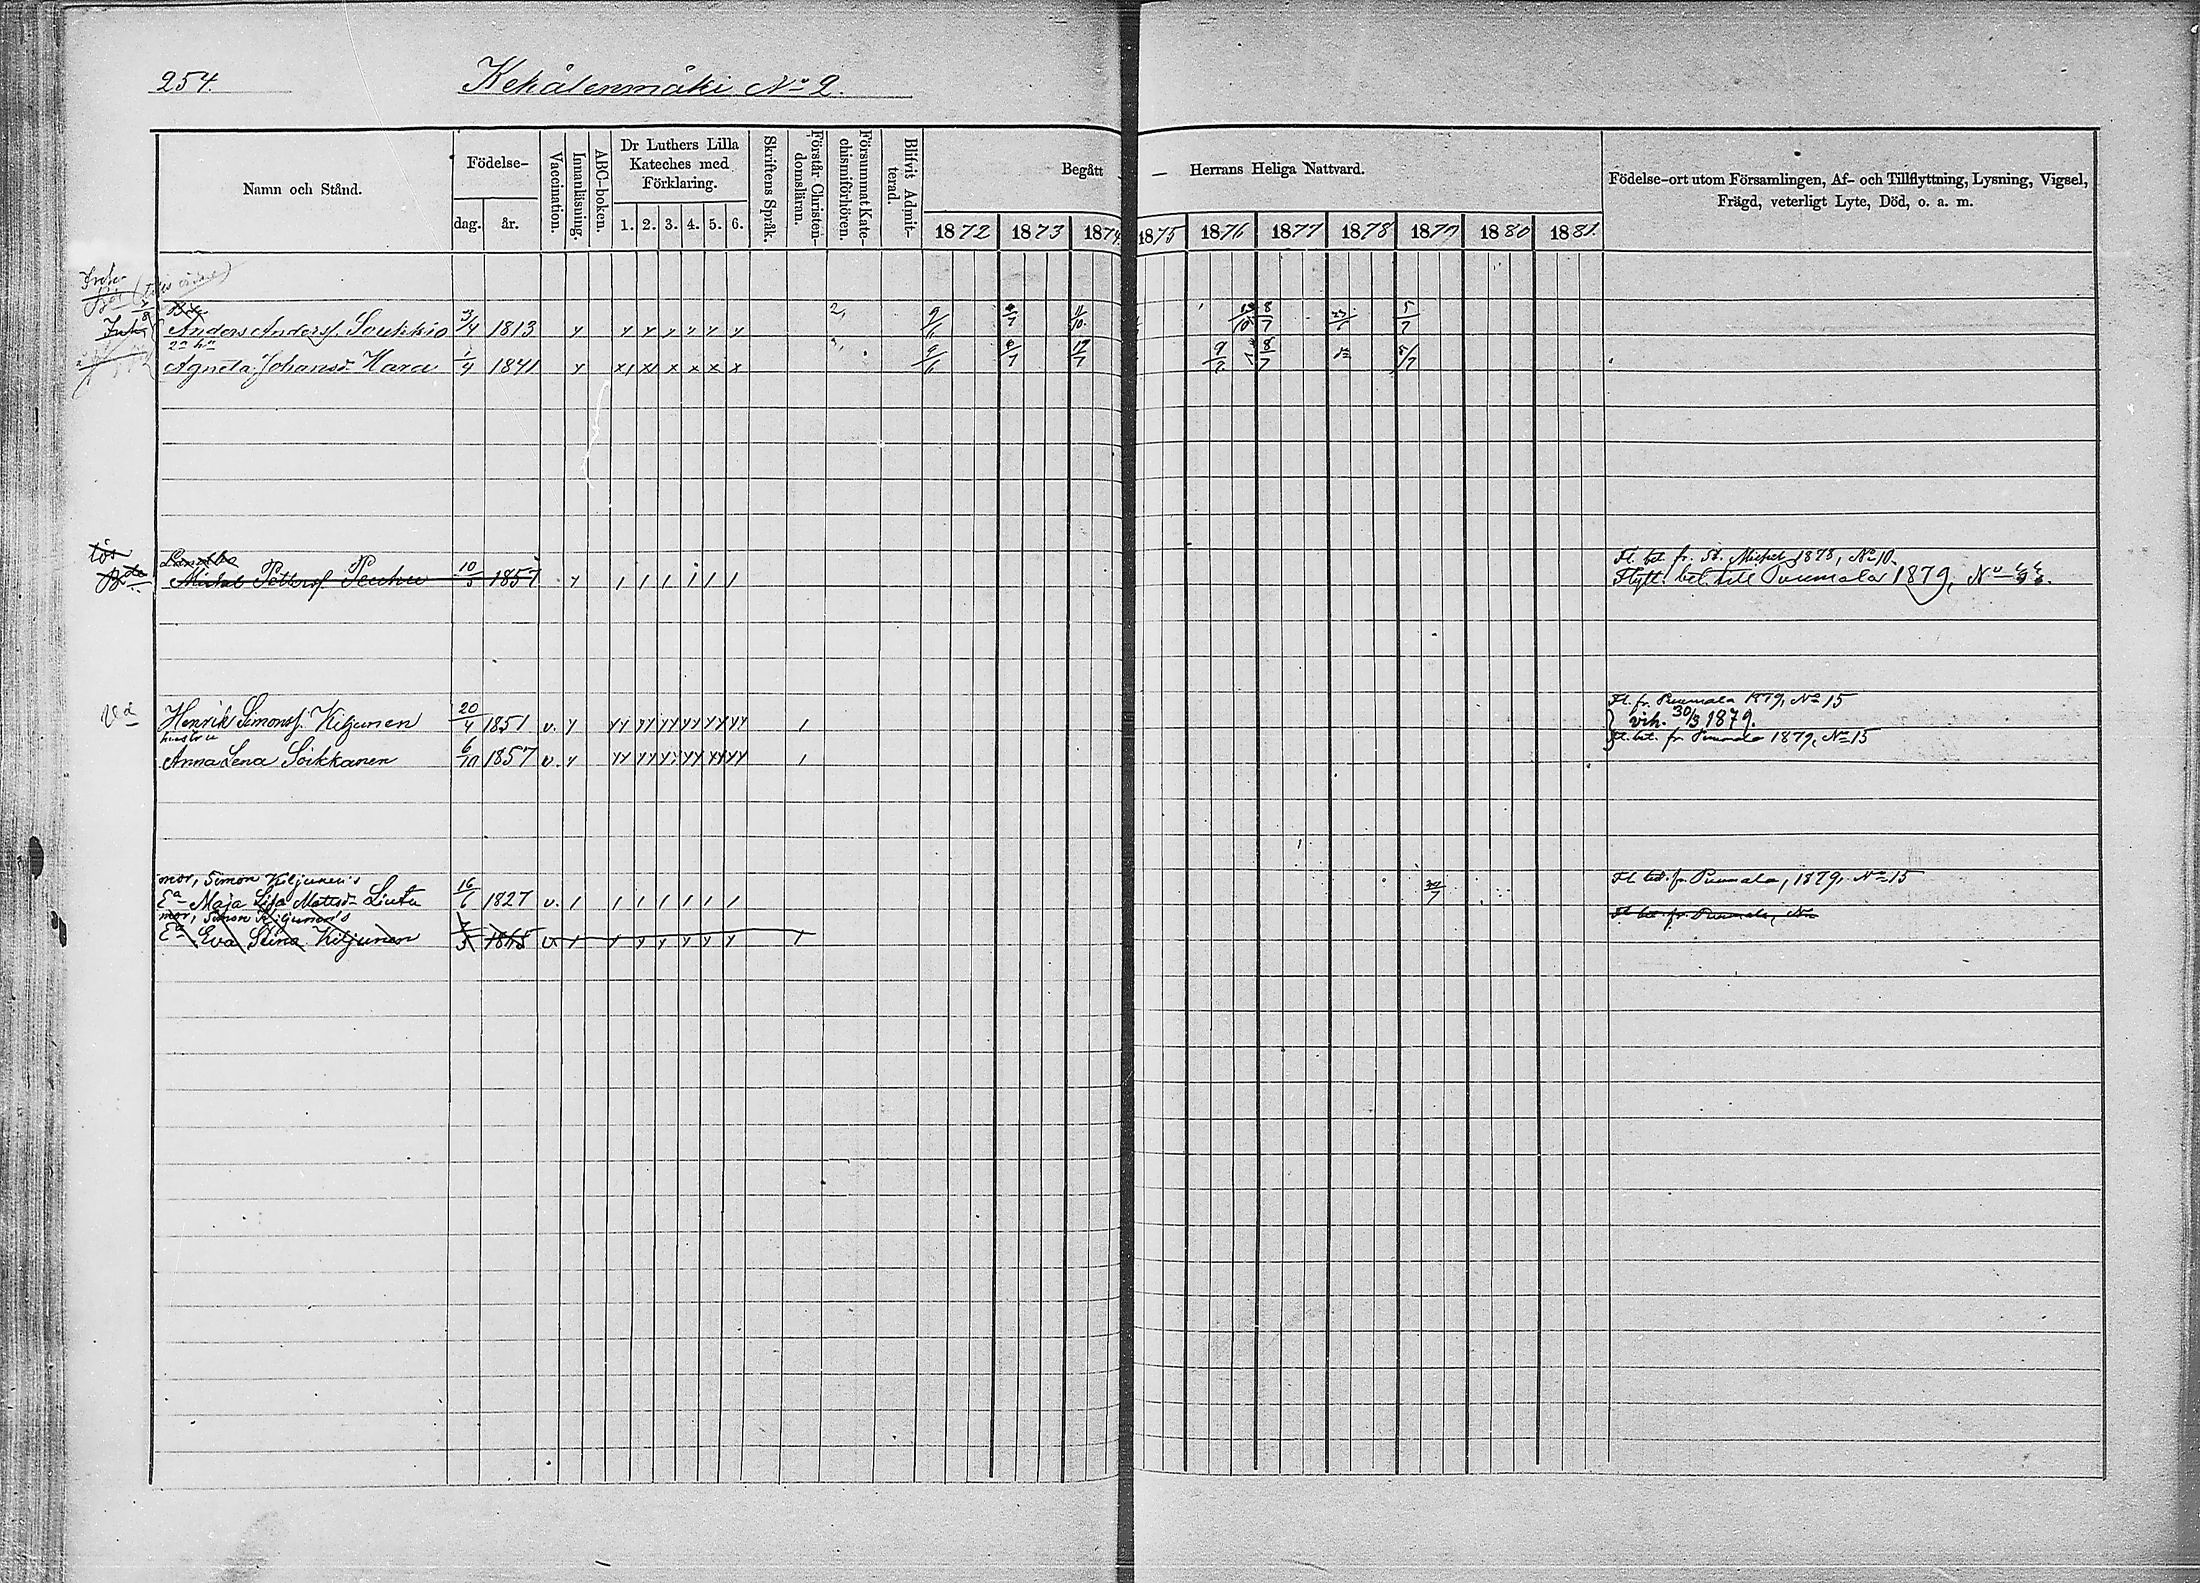 254.
Kekälenmäki No 2.
Namn och Stånd.
Födelse-
dag.
år.
Vaccination.
Innanläsning.
ABC-boken.
Dr Luthers Lilla
Kateches med
Förklaring.
1. 2. 3. 4. 5. 6.
Skriftens Språk.
Förstår Christen-
domsläran.
Försummat Kate-
chismiförhören.
Blifvit Admit-
terad.
Begått — Herrans Heliga Nattvard.
1872 1873 1874 1875 1876 1877 1878 1879 1880 1881.
Födelse-ort utom Församlingen, Af- och Tillflyttning, Lysning, Vigsel,
Frägd, veterligt Lyte, Död, o. a. m.
Anders Andersf. Soukkio 3/4 1813
2a hu
Agneta Johansdr Hara 1/4 1841
lös
Michel Pettersf. Peuhu 10/5 1857
Fl. bet. fr. St. Michel 1878, No 10.
Flytt. bet. till Puumala 1879, No
Henrik Simonsf. Kiljunen 20/4 1851 v.
Fl. fr. Puumala 1879, No 15
vih. 30/3 1879.
hustru
Anna Lena Soikkanen 6/10 1857 v.
Fl. bet. fr. Puumala 1879, No 15
mor, Simon Kiljunen's
Ea Maja Lisa Mattsdr Liuta 16/6 1827 v.
Fl. bet. fr. Puumala, 1879, No 15
mor, Simon Kiljunen's
Ea Eva Stina Kiljunen
Fl. bet. fr. Puumala, No